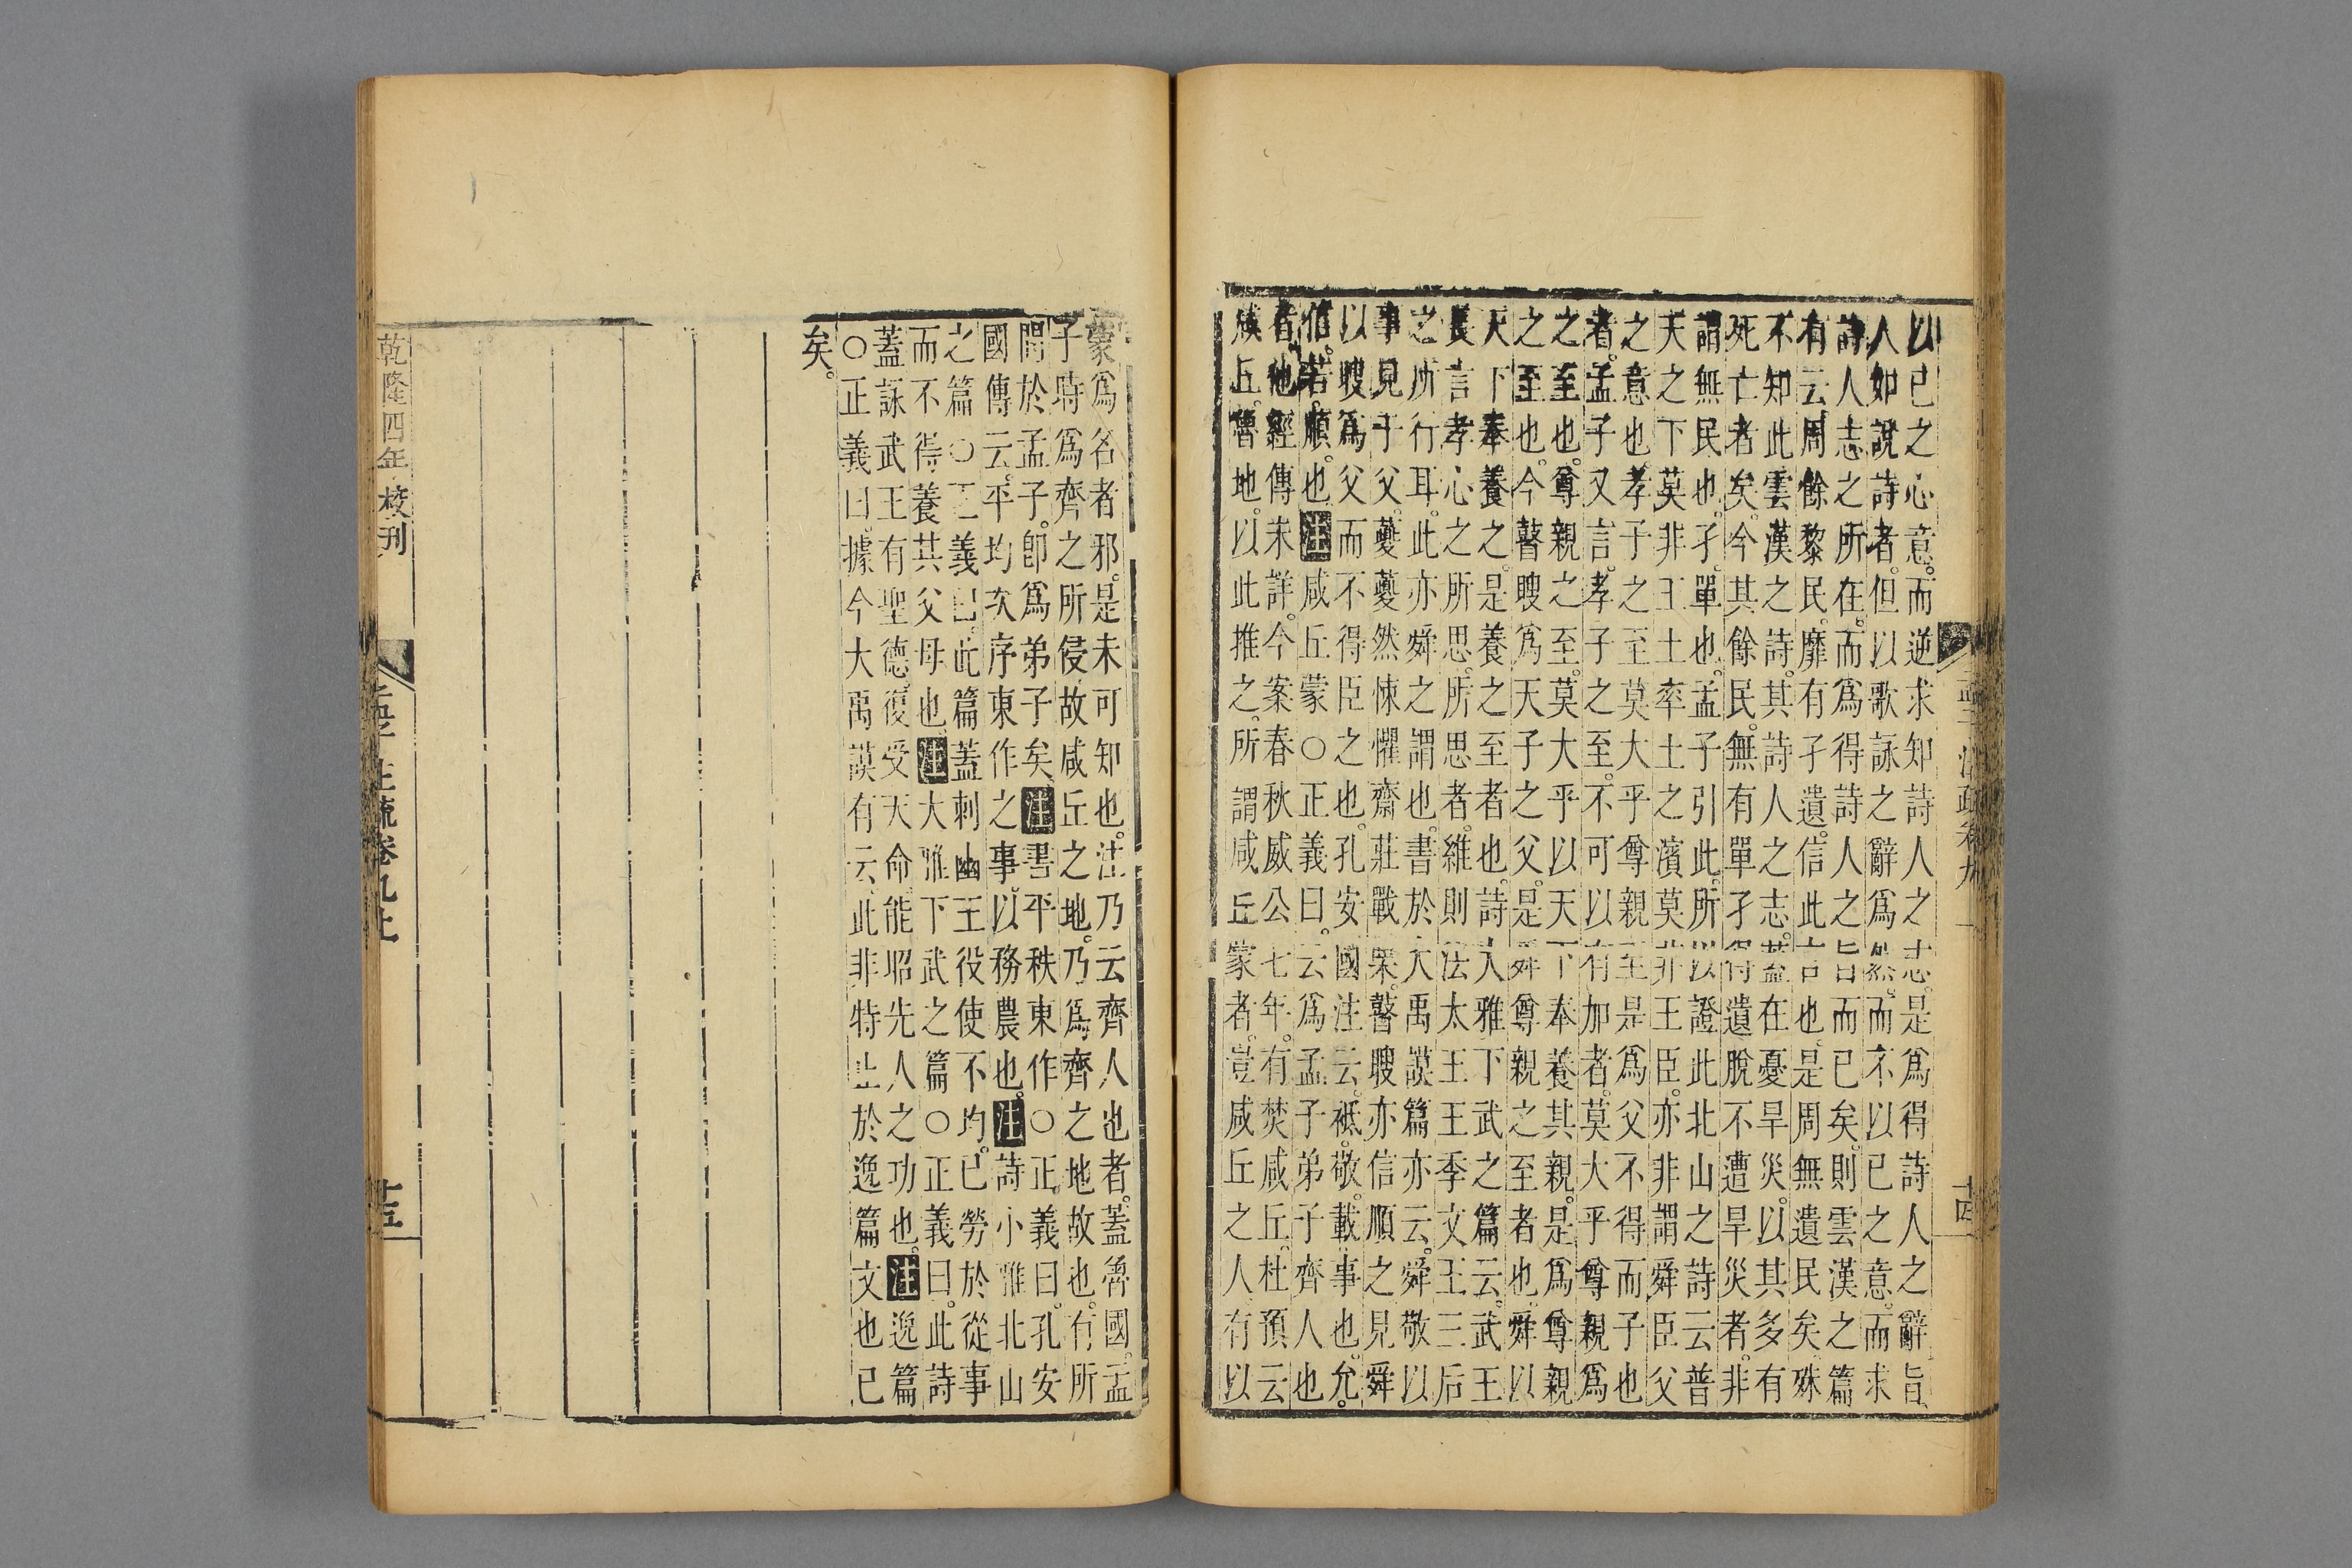 以已之心意而逆求知詩人之志是爲得詩人之辭旨
人如說詩者但以歌詠之辭爲然而不以已之意而求
詩人志之所在而爲得詩人之旨而已矣則雲漢之篇
有云周餘黎民靡有孑遺信此言也是周無遺民矣殊
不知此雲漢之詩其詩人之志蓋在憂旱災以其多有
死亡者矣今其餘民無有單孑得遺脫不遭旱災者非
謂無民也孑單也孟子引此所以證此北山之詩云普
天之下莫非王土率土之濱莫非王臣亦非謂舜臣父
之意也孝子之至莫大乎尊親至是爲父不得而子也
者孟子又言孝子之至不可以有加者莫大乎尊親爲
之至也尊親之至莫大乎以天下奉養其親是爲尊親
之至也今瞽瞍爲天子之父是舜尊親之至者也舜以
天下奉養之是養之至者也詩大雅下武之篇云武王
長言孝心之所思所思者維則法太王王季文王三后
之所行耳此亦舜之謂也書於大禹謨篇亦云舜敬以
事見于父夔夔然悚懼齋莊戰栗瞽瞍亦信順之見舜
以瞍爲父而不得臣之也孔安國注云祗敬載事也允
信若順也注咸丘蒙○正義曰云爲孟子弟子齊人也
者他經傳未詳今案春秋威公七年有焚咸丘杜預云
咸丘魯地以此推之所謂咸丘蒙者豈咸丘之人有以
孟子注疏卷九
十四
蒙爲名者邪是未可知也注乃云齊人也者蓋魯國孟
子時爲齊之所侵故咸丘之地乃爲齊之地故也有所
問於孟子即爲弟子矣注書平秩東作○正義曰孔安
國傳云平均次序東作之事以務農也注詩小雅北山
之篇○正義曰此篇蓋刺幽王役使不均已勞於從事
而不得養其父母也注大雅下武之篇○正義曰此詩
蓋詠武王有聖德復受天命能昭先人之功也注逸篇
○正義曰據今大禹謨有云此非特止於逸篇文也已
矣
乾隆四年校刊
孟子注疏卷九上
十五